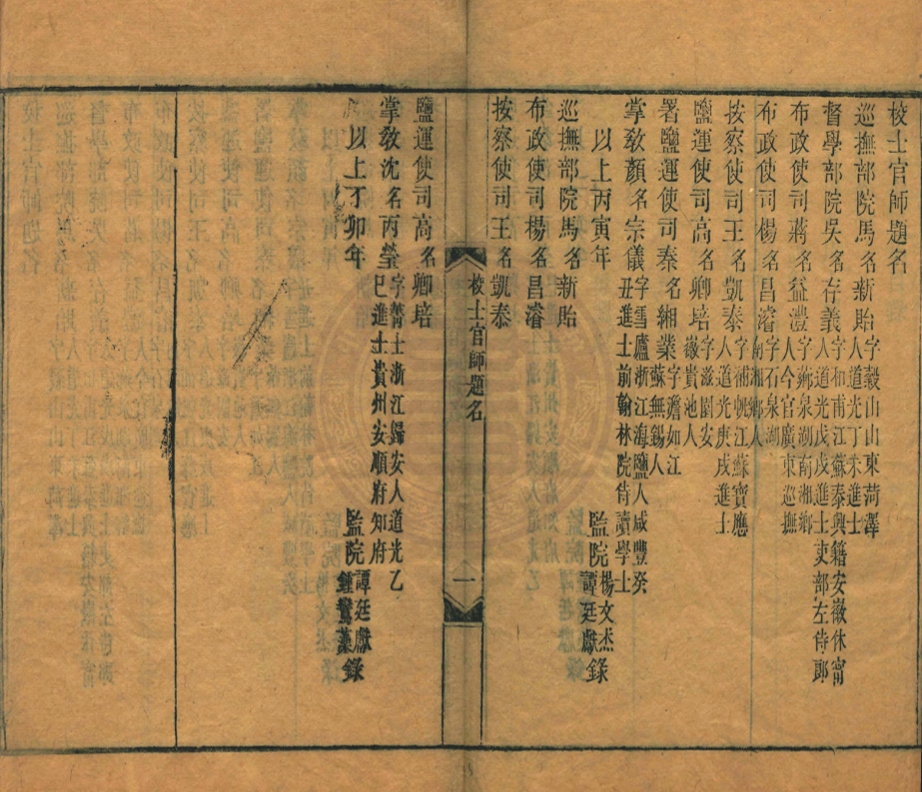 校士官師題名
巡撫部院馬名新貽字穀山山東菏澤人道光丁未進士
督學部院吳名存義字和甫江蘇泰興籍安徽休甯人道光戊戌進士吏部左侍郎
布政使司蔣名益澧字薌泉湖南湘鄉人今官廣東巡撫
布政使司楊名昌濬字石泉湖南湘鄉人
按察使司王名凱泰字補帆江蘇寶應人道光庚戌進士
鹽運使司高名卿培字滋園安徽貴池人
署鹽運使司秦名緗業字澹如江蘇無錫人
掌敎顏名宗儀字雪廬浙江海鹽人咸豐癸丑進士前翰林院侍讀學士
以上丙寅年 監院楊文杰譚廷獻錄
巡撫部院馬名新貽
布政使司楊名昌濬
按察使司王名凱泰
校士官師題名 一
鹽運使司高名卿培
掌敎沈名丙瑩字菁士浙江歸安人道光乙巳進士貴州安順府知府
以上丁卯年 監院譚廷獻鍾鷟藻錄